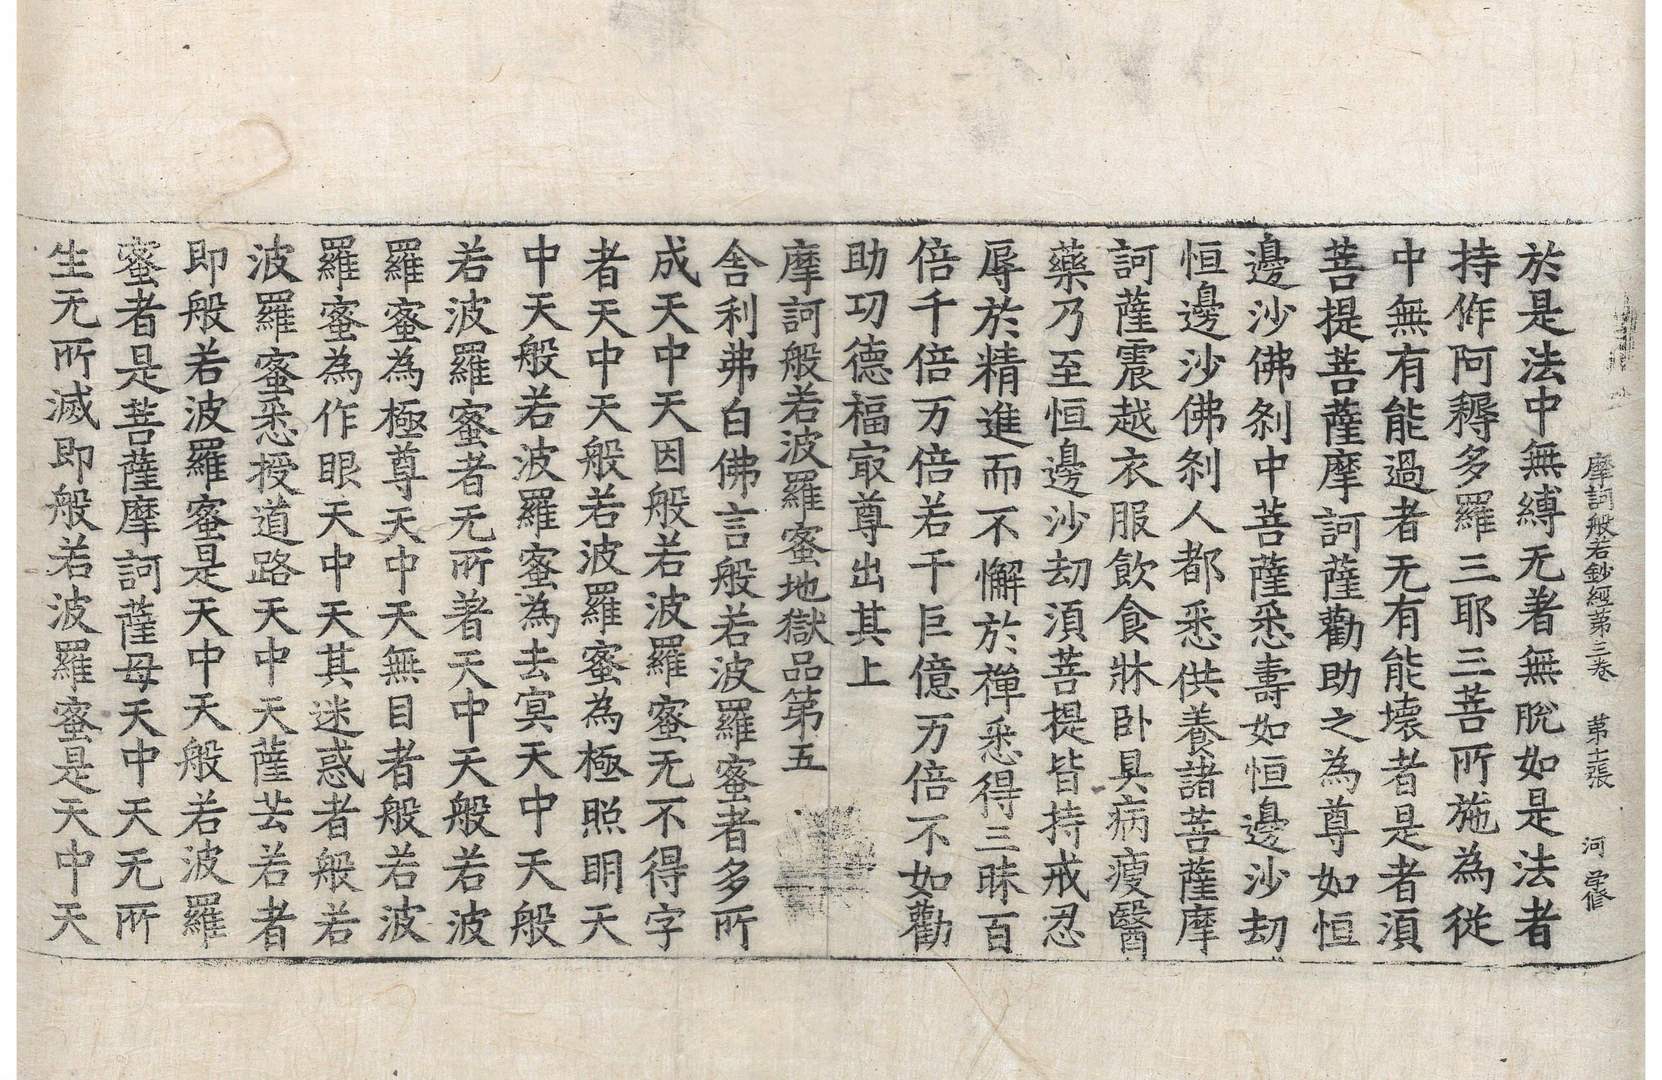 摩訶般若鈔經第三卷　第十二張　河　學修
於是法中無縛无著無脫如是法者
持作阿耨多羅三耶三菩所施為從
中無有能過者无有能壞者是者湏
菩提菩薩摩訶薩勸助之為尊如恒
邊沙佛剎中菩薩悉壽如恒邊沙劫
恒邊沙佛剎人都悉供養諸菩薩摩
訶薩震越衣服飲食牀卧具病瘦醫
藥乃至恒邊沙劫湏菩提皆持戒忍
辱於精進而不懈於禪悉得三昧百
倍千倍万倍若干巨億万倍不如勸
助功德福㝡尊出其上
摩訶般若波羅蜜地獄品第五
舍利弗白佛言般若波羅蜜者多所
成天中天因般若波羅蜜无不得字
者天中天般若波羅蜜為極照明天
中天般若波羅蜜為去冥天中天般
若波羅蜜者无所著天中天般若波
羅蜜為極尊天中天無目者般若波
羅蜜為作眼天中天其迷惑者般若
波羅蜜悉授道路天中天薩芸若者
即般若波羅蜜是天中天般若波羅
蜜者是菩薩摩訶薩母天中天无所
生无所滅即般若波羅蜜是天中天